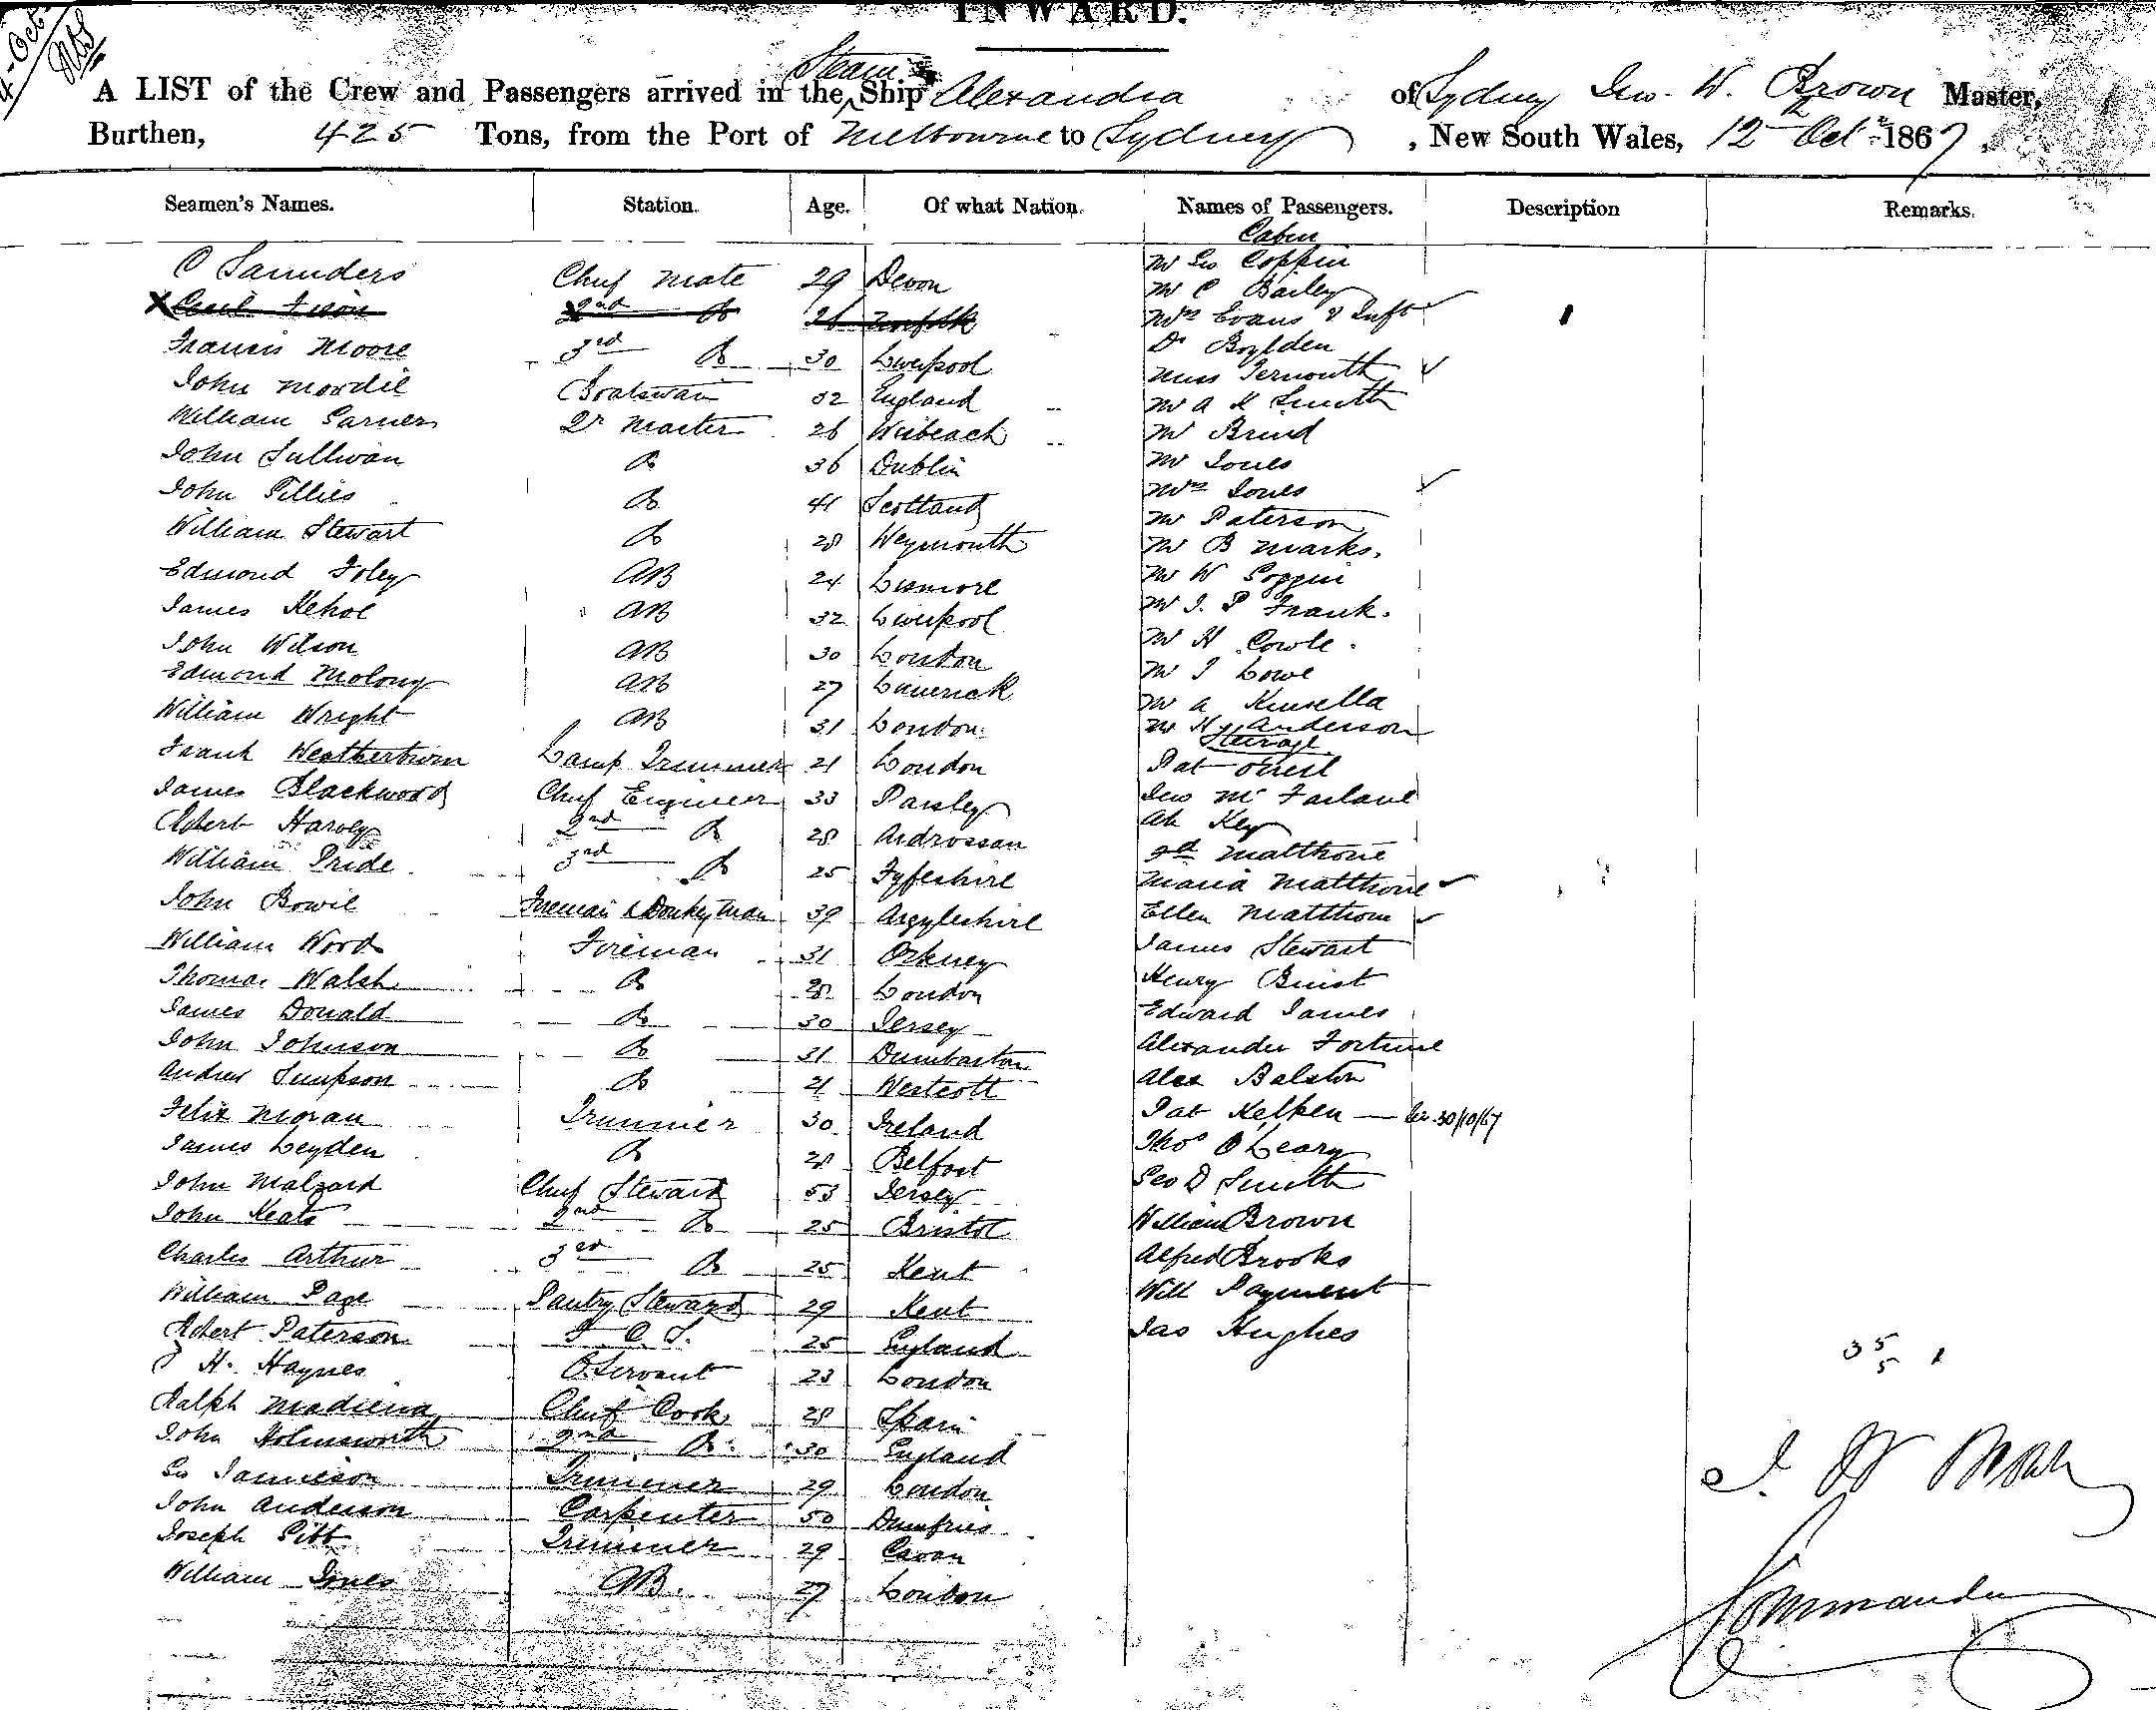 INWARD.
A LIST of the Crew and Passengers arrived in the Steam Ship Alexandra of Sydney Geo. W. Brown Master,
Burthen, 425 Tons, from the Port of Melbourne to Sydney, New South Wales, 12th Octr 1867.
Seamen's Names. Station. Age. Of what Nation. Names of Passengers. Description Remarks.
Cabin
C Saunders Chief Mate 29 Devon Mr Geo Coppin
Mr C Bailey
2nd Do 26 Norfolk Mrs Evans & Inft
Francis Moore 3rd Do 30 Liverpool Dr
John Mordie Boatswain 32 England Miss
William Garner Qr Master 26 Wisbeach Mr A K Smith
John Sullivan Do 36 Dublin Mr Brind
John Gillies Do 41 Scotland Mr Jones
Mrs Jones
William Stewart Do 28 Weymouth Mr Paterson
Edmond Foley AB 24 Lismore Mr B Marks.
James Kehoe AB 32 Liverpool Mr W Coppin
Mr J. P Frank.
John Wilson AB 30 London Mr H Cowle.
Edmond Molony AB 27 Limerick Mr J Lowe
William Wright AB 31 London Mr A Kinsella
Mr Hy Anderson
Steerage
Frank Weatherburn Lamp Trimmer 21 London Pat
James Blackwood Chief Engineer 33 Paisley Geo McFarlane
Robert Harvey 2nd Do 28 Ardrossan Ah Key
William Pride 3rd Do 25 Fyfeshire Matthorie
Maria Matthorie
John Bowie Fireman & Donkeyman 39 Argyleshire Ellen Matthorie
William Wood Fireman 31 Orkney James Stewart
Thomas Walsh Do 28 London Henry Buist
James Donald Do 30 Jersey Edward James
John Johnson Do 31 Dumbarton Alexander Fortune
Andrew Simpson Do 21 Westcott Alex Balston
Felix Moran Trimmer 30 Ireland Pat Kelken 30/10/67
James Leyden Do 28 Belfast Thos O'Leary
John Malzard Chief Steward 53 Jersey Geo D Smith
John Keats 2nd Do 25 Bristol William Brown
Charles Arthur 3rd Do 25 Kent Alfred Brooks
William Page Pantry Steward 29 Kent Will Payment
Robert Paterson F C S. 25 England Jas Hughes
J H. Haynes O Servant 23 London
Ralph Madiena Chief Cook 28 Spain
John Holmsworth 2nd Do. 30 England
Geo Jamieson Trimmer 29 London
John Anderson Carpenter 50 Dumfries
Joseph Pitt Trimmer 29 Cavan
William Jones AB. 27 London
35
5
Commander